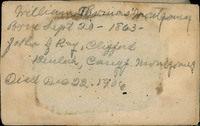 William Thomas Montgomery
Born Sept 20 - 1863 -
John & Roy, Clifford
Montgomery
Died Dec 22, 1936